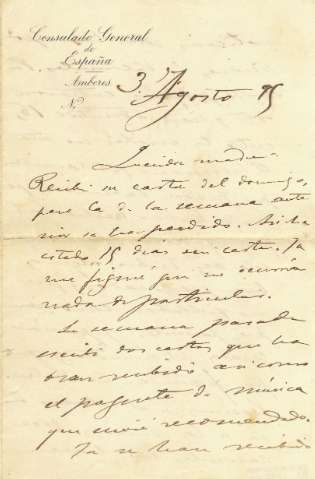 Consulado General
de
España
Amberes
N.
3 Agosto 95
Querida madre:
Recibí su carta del domingo,
pero la de la semana ante
rior se ha perdido. Así he
estado 15 días sin carta. Ya
me figuré que no ocurría
nada de particular.
La semana pasada
escribí dos cartas que ha
bran recibido así como
el paquete de música
que envié recomendado.
Ya se han recibido